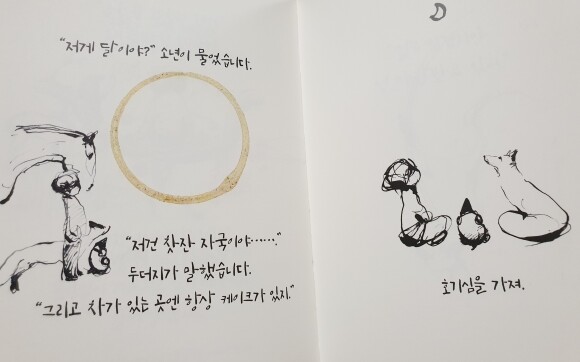 "저게 달이야?" 소년이 물었습니다.
"저건 찻잔 자국이야……"
두더지가 말했습니다.
"그리고 차가 있는 곳엔 항상 케이크가 있지."
호기심을 가져.